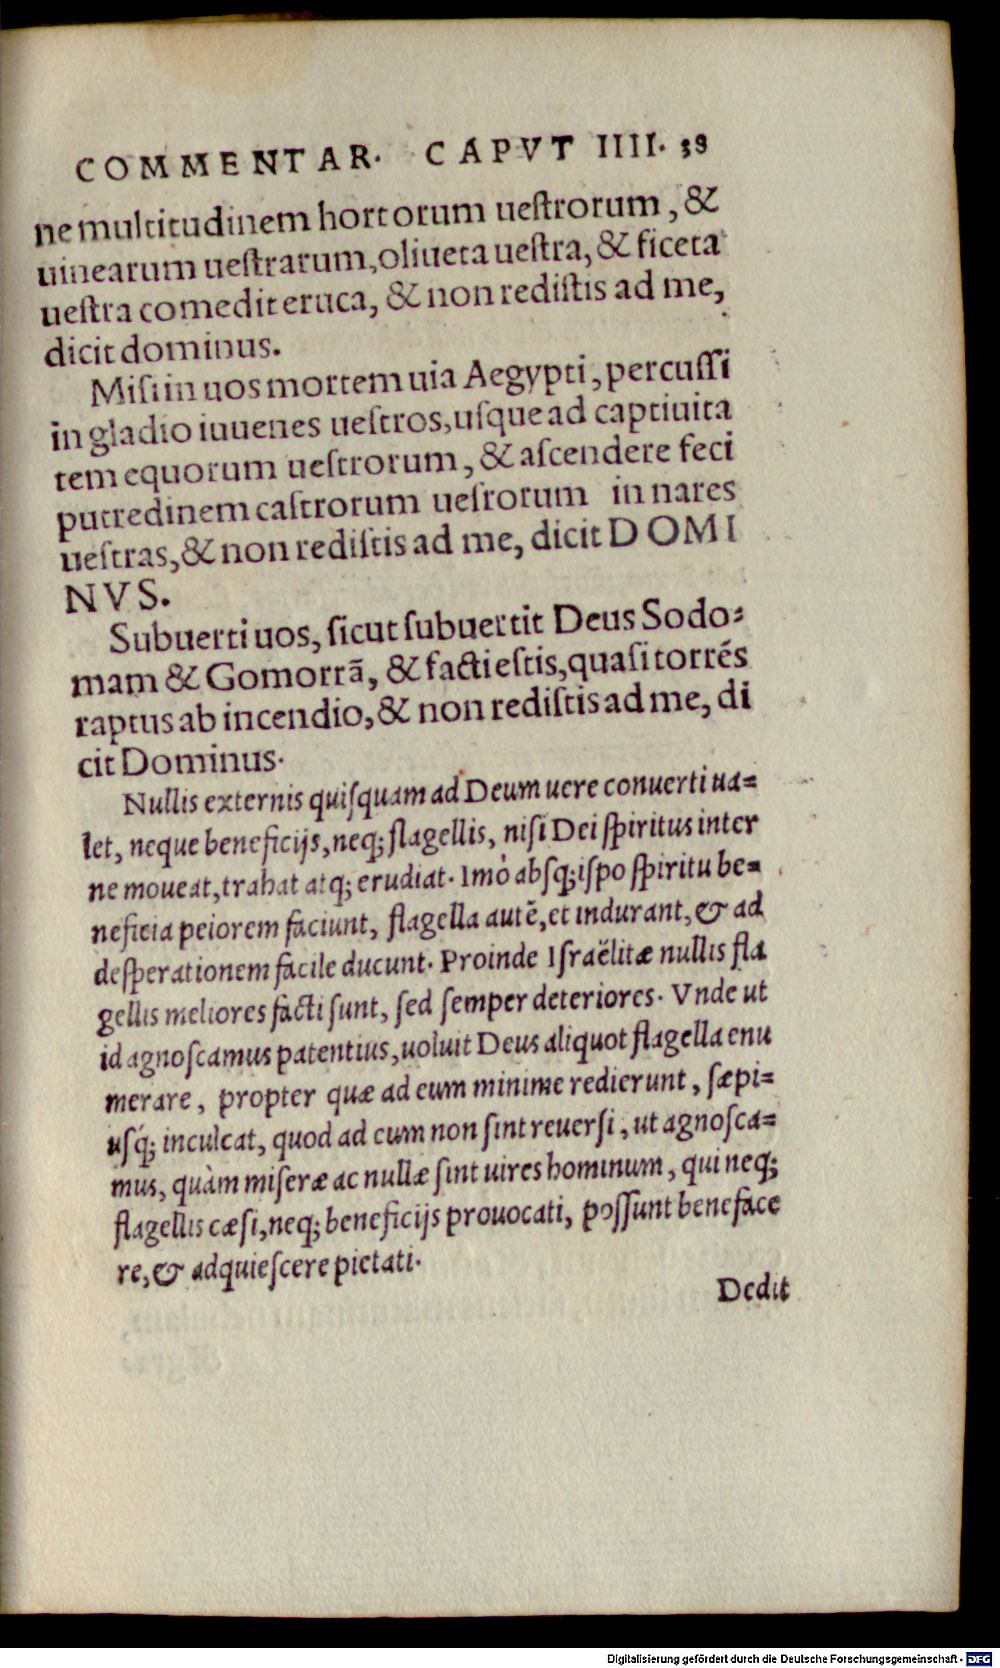 COMMENTAR. CAPVT IIII. 39
ne multitudinem hortorum ueſtrorum, &
uinearum ueſtrarum, oliueta ueſtra, & ficeta
ueſtra comedit eruca, & non rediſtis ad me,
dicit dominus.
Miſi in uos mortem uia Aegypti, percuſſi
in gladio iuuenes ueſtros, uſque ad captiuita
tem equorum ueſtrorum, & aſcendere feci
putredinem caſtrorum ueſrorum in nares
ueſtras, & non rediſtis ad me, dicit DOMI
NVS.
Subuerti uos, ſicut ſubuertit Deus Sodo⸗
mam & Gomorrã, & facti eſtis, quaſi torrẽs
raptus ab incendio, & non rediſtis ad me, di
cit Dominus.
Nullis externis quiſquam ad Deum uere conuerti ua⸗
let, neque beneficijs, neq; flagellis, niſi Dei ſpiritus inter
ne moueat, trahat atq; erudiat. Imò abſq; iſpo ſpiritu be⸗
neficia peiorem faciunt, flagella autẽ, et indurant, & ad
deſperationem facile ducunt. Proinde Iſraëlitæ nullis fla
gellis meliores facti ſunt, ſed ſemper deteriores. Vnde ut
id agnoſcamus patentius, uoluit Deus aliquot flagella enu
merare, propter quæ ad eum minime redierunt, ſæpi⸗
uſq́; inculcat, quod ad eum non ſint reuerſi, ut agnoſca⸗
mus, quàm miſeræ ac nullæ ſint uires hominum, qui neq;
flagellis cæſi, neq; beneficijs prouocati, poſſunt beneface
re, & adquieſcere pietati.
Dedit
Digitalisierung gefördert durch die Deutsche Forschungsgemeinschaft - DFG